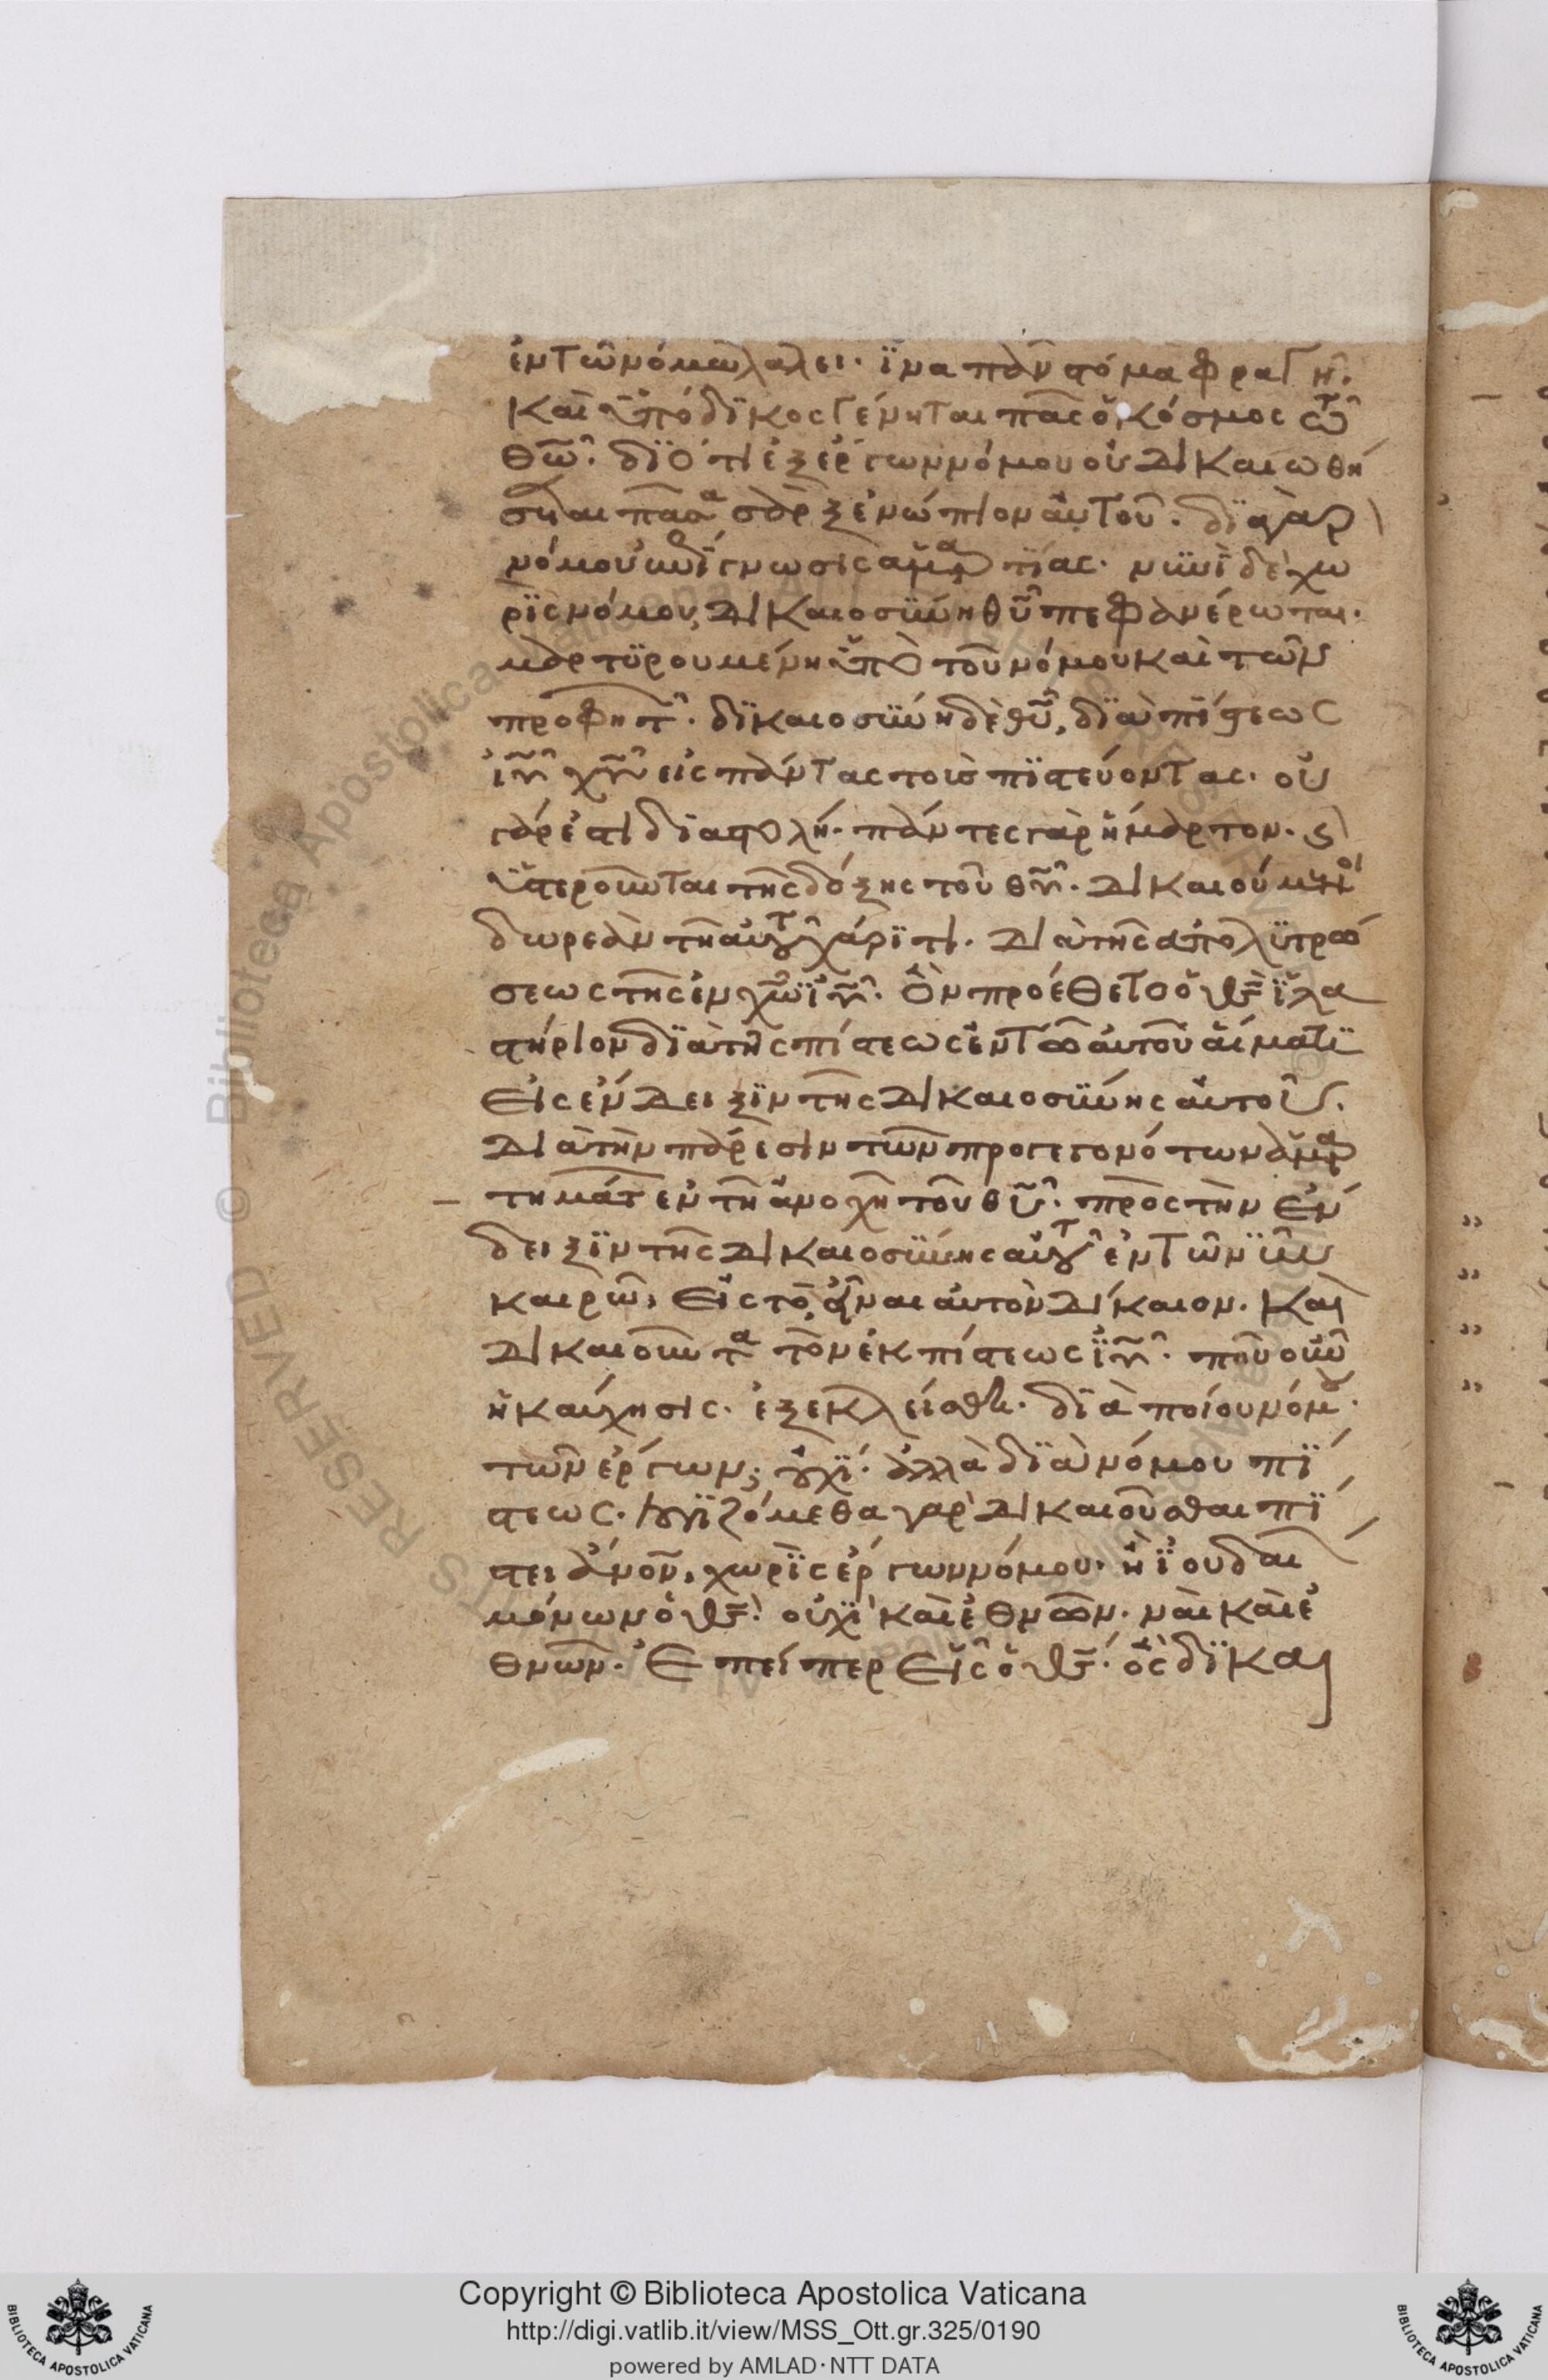 ἐν τῶ νόμω λαλεῖ· ἵνα πᾶν στόμα φραγῆ·
καὶ ὑπόδικος γένηται πᾶς ὁ κόσμος τῶ
θω· διότι ἐξ ἔργων νόμου οὐ δικαιωθή
σεται πᾶσα σὰρξ ἐνώπιον αὐτοῦ· διὰ γὰρ
νόμου ἐπίγνωσις ἁμαρτίας· νυνὶ δὲ χω
ρὶς νόμου, δικαιοσύνη θυ πεφανέρωται·
μαρτυρουμένη ὑπὸ τοῦ νόμου καὶ τῶν
προφητ· δικαιοσύνη δὲ θυ, διὰ πίστεως
ιυ χυ εἰς πάντας τοὺς πιστεύοντας· οὐ
γάρ ἐστι διαστολή· πάντες γὰρ ἥμαρτον· ϛ
ὑστεροῦνται τῆς δόξης τοῦ θυ· δικαιούμενοι
δωρεὰν τῆ αὐτοῦ χάριτι· διὰ τῆς ἀπολυτρώ
σεως τῆς ἐν χω ιυ· ὃν προέθετο ὁ θς ἱλα
στήριον διὰ τῆς πίστεως ἐν τῶ αὐτοῦ αἵματι
εἰς ἔνδειξιν τῆς δικαιοσύνης αὐτοῦ·
διὰ τὴν πάρεσιν τῶν προγεγονότων ἁμαρ
τημάτ ἐν τῆ ἀνοχῆ τοῦ θυ· πρὸς τὴν ἔν
δειξιν τῆς δικαιοσύνης αὐτοῦ ἐν τῶ νῦν
καιρῶ, εἰς τὸ εἶναι αὐτὸν δίκαιον· καὶ
δικαιοῦντα τὸν ἐκ πίστεως ιυ· ποῦ οὖν
ἡ καύχησις· ἐξεκλείσθη· διὰ ποίου νόμου·
τῶν ἔργων; οὐχί· ἀλλὰ διὰ νόμου πί
στεως· λογιζόμεθα γὰρ δικαιοῦσθαι πί
στει ανον, χωρὶς ἔργων νόμου· ἢ ἰουδαί
μόνων ὁ θς· οὐχὶ καὶ ἐθνῶν· ναὶ καὶ ἐ
θνῶν· ἐπείπερ εἷς ὁ θς· ὃς δικαι
Copyright © Biblioteca Apostolica Vaticana
http://digi.vatlib.it/view/MSS_Ott.gr.325/0190
powered by AMLAD·NTT DATA